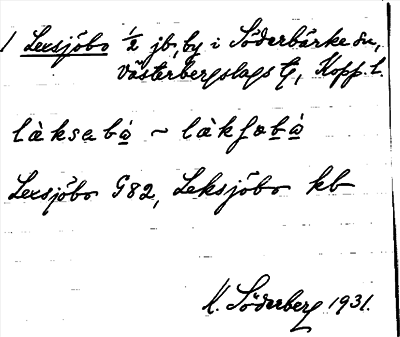 1 Lexsjöbo 1/2 jb, by i Söderbärke sn,
Västerbergslags tg, Kopp. l.
làksabò ~ làkʃəbò
Lexsjöbo G82, Leksjöbo kb
K. Söderberg 1931.